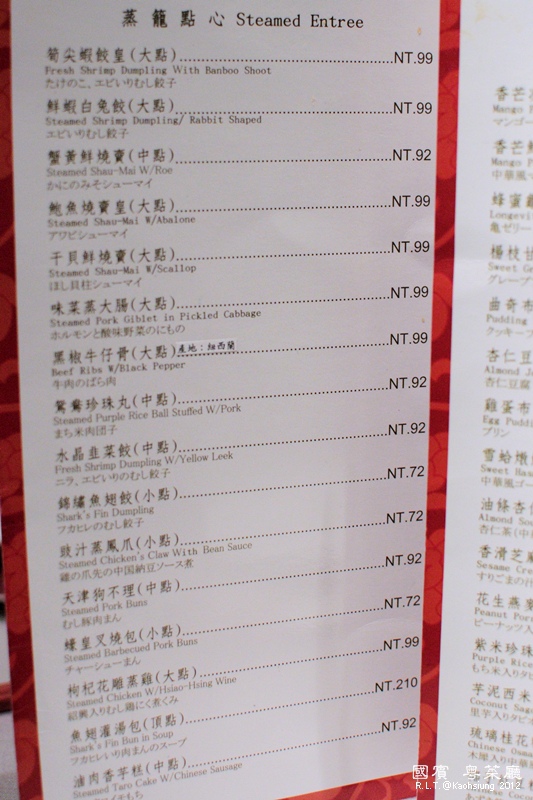 蒸籠點心 Steamed Entree
筍尖蝦餃皇(大點) NT.99
Fresh Shrimp Dumpling With Banboo Shoot
たけのこ、エビいりむし餃子
鮮蝦白兔餃(大點) NT.99
Steamed Shrimp Dumpling/ Rabbit Shaped
エビいりむし餃子
蟹黃鮮燒賣(中點) NT.92
Steamed Shau-Mai W/Roe
かにのみそシューマイ
鮑魚燒賣皇(大點) NT.99
Steamed Shau-Mai W/Abalone
アワビシューマイ
干貝鮮燒賣(大點) NT.99
Steamed Shau-Mai W/Scallop
ほし貝柱シューマイ
味菜蒸大腸(大點) NT.99
Steamed Pork Giblet in Pickled Cabbage
ホルモンと酸味野菜のにもの
黑椒牛仔骨(大點) 產地:紐西蘭 NT.99
Beef Ribs W/Black Pepper
牛肉のばら肉
鴛鴦珍珠丸(中點) NT.92
Steamed Purple Rice Ball Stuffed W/Pork
まち米肉団子
水晶韭菜餃(中點) NT.92
Fresh Shrimp Dumpling W/Yellow Leek
ニラ、エビいりのむし餃子
錦繡魚翅餃(小點) NT.72
Shark's Fin Dumpling
フカヒレのむし餃子
豉汁蒸鳳爪(小點) NT.72
Steamed Chicken's Claw With Bean Sauce
雞の爪先の中国納豆ソース煮
天津狗不理(中點) NT.92
Steamed Pork Buns
むし豚肉まん
蠔皇叉燒包(小點) NT.72
Steamed Barbecued Pork Buns
チャーシューまん
枸杞花雕蒸雞(大點) NT.99
Steamed Chicken W/Hsiao-Hsing Wine
紹興入りむし鶏にく煮くみ
魚翅灌湯包(頂點) NT.210
Shark's Fin Bun in Soup
フカヒレいり肉まんのスープ
滷肉香芋糕(中點) NT.92
Steamed Taro Cake W/Chinese Sausage
香芒
Mango
マンゴー
香芒
Mango
中華風
蜂蜜
Longevi
亀ゼリー
楊枝甘
Sweet
グレープ
曲奇布
Pudding
クッキー
杏仁豆
Almond
杏仁豆腐
雞蛋布
Egg Pudd
プリン
雪蛤燉
Sweet
中華風
油條杏
Almond Sou
杏仁茶(中
香滑芝麻
Sesame Cre
すりごまの
花生燕麥
Peanut
ピーナッツ入
紫米珍珠
Purple Rice
もち米入りタピ
芋泥西米
Coconut Sag
里芋入りタピ
琉璃桂花
Chinese Osma
國賓 粵菜廳
R.L.T.@Kaohsiung 2012